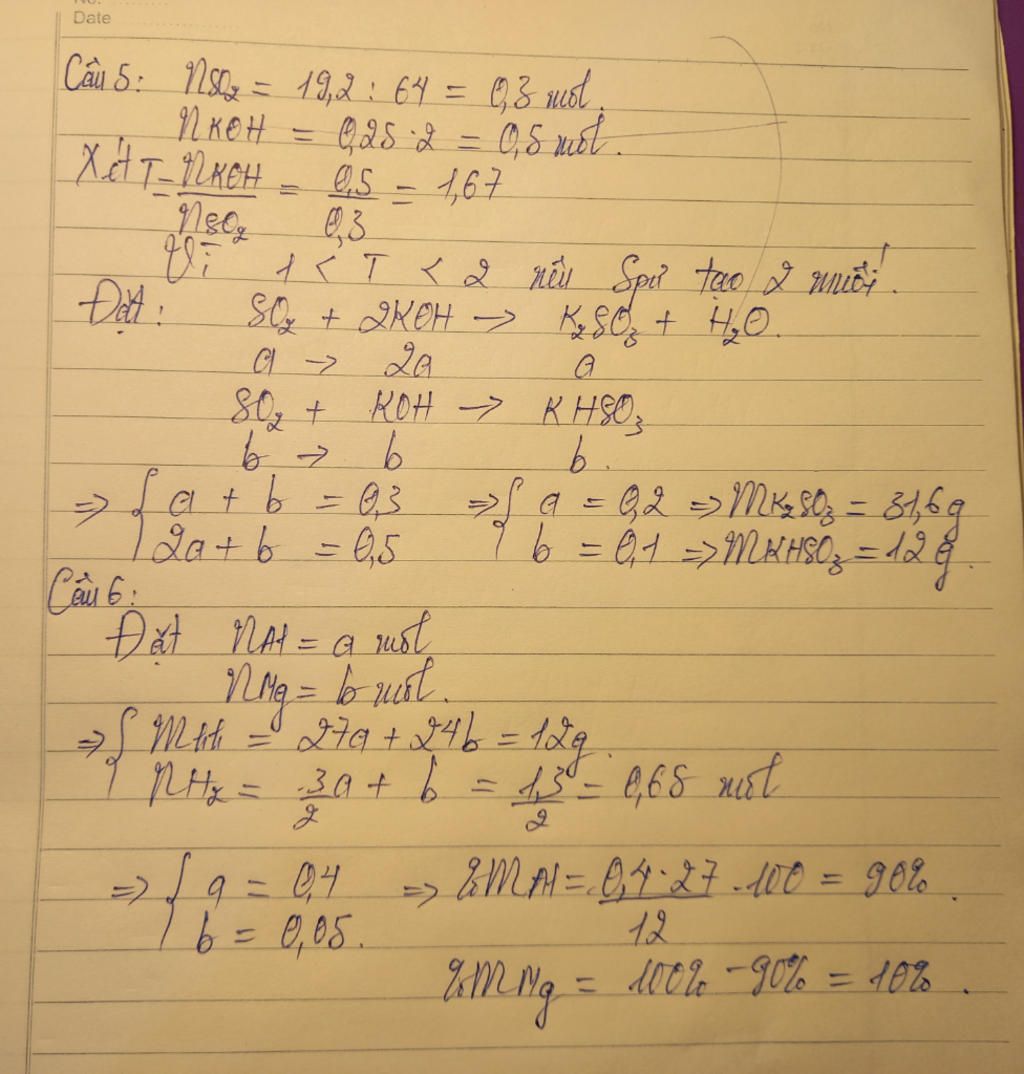 No.
Date
Câu 5: nSO₂ = 19,2 : 64 = 0,3 mol.
nKOH = 0,25 . 2 = 0,5 mol.
Xét T = nKOH / nSO₂ = 0,5 / 0,3 = 1,67
Vì 1 < T < 2 nên Spứ tạo 2 muối.
Đặt: SO₂ + 2KOH → K₂SO₃ + H₂O.
a → 2a a
SO₂ + KOH → KHSO₃
b → b b.
⇒ { a + b = 0,3 ⇒ { a = 0,2 ⇒ mK₂SO₃ = 31,6g
2a + b = 0,5 b = 0,1 ⇒ mKHSO₃ = 12g.
Câu 6:
Đặt nAl = a mol
nMg = b mol.
⇒ { mhh = 27a + 24b = 12g.
nH₂ = 3/2 a + b = 1,3 / 2 = 0,65 mol
⇒ { a = 0,4 ⇒ %mAl = 0,4 . 27 / 12 . 100 = 90%.
b = 0,05.
%mMg = 100% - 90% = 10%.